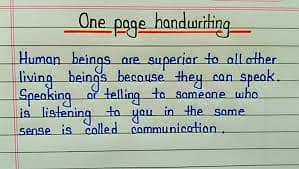 One page handwriting
Human beings are superior to all other
living beings because they can speak.
Speaking or telling to someone who
is listening to you in the same
sense is called communication.